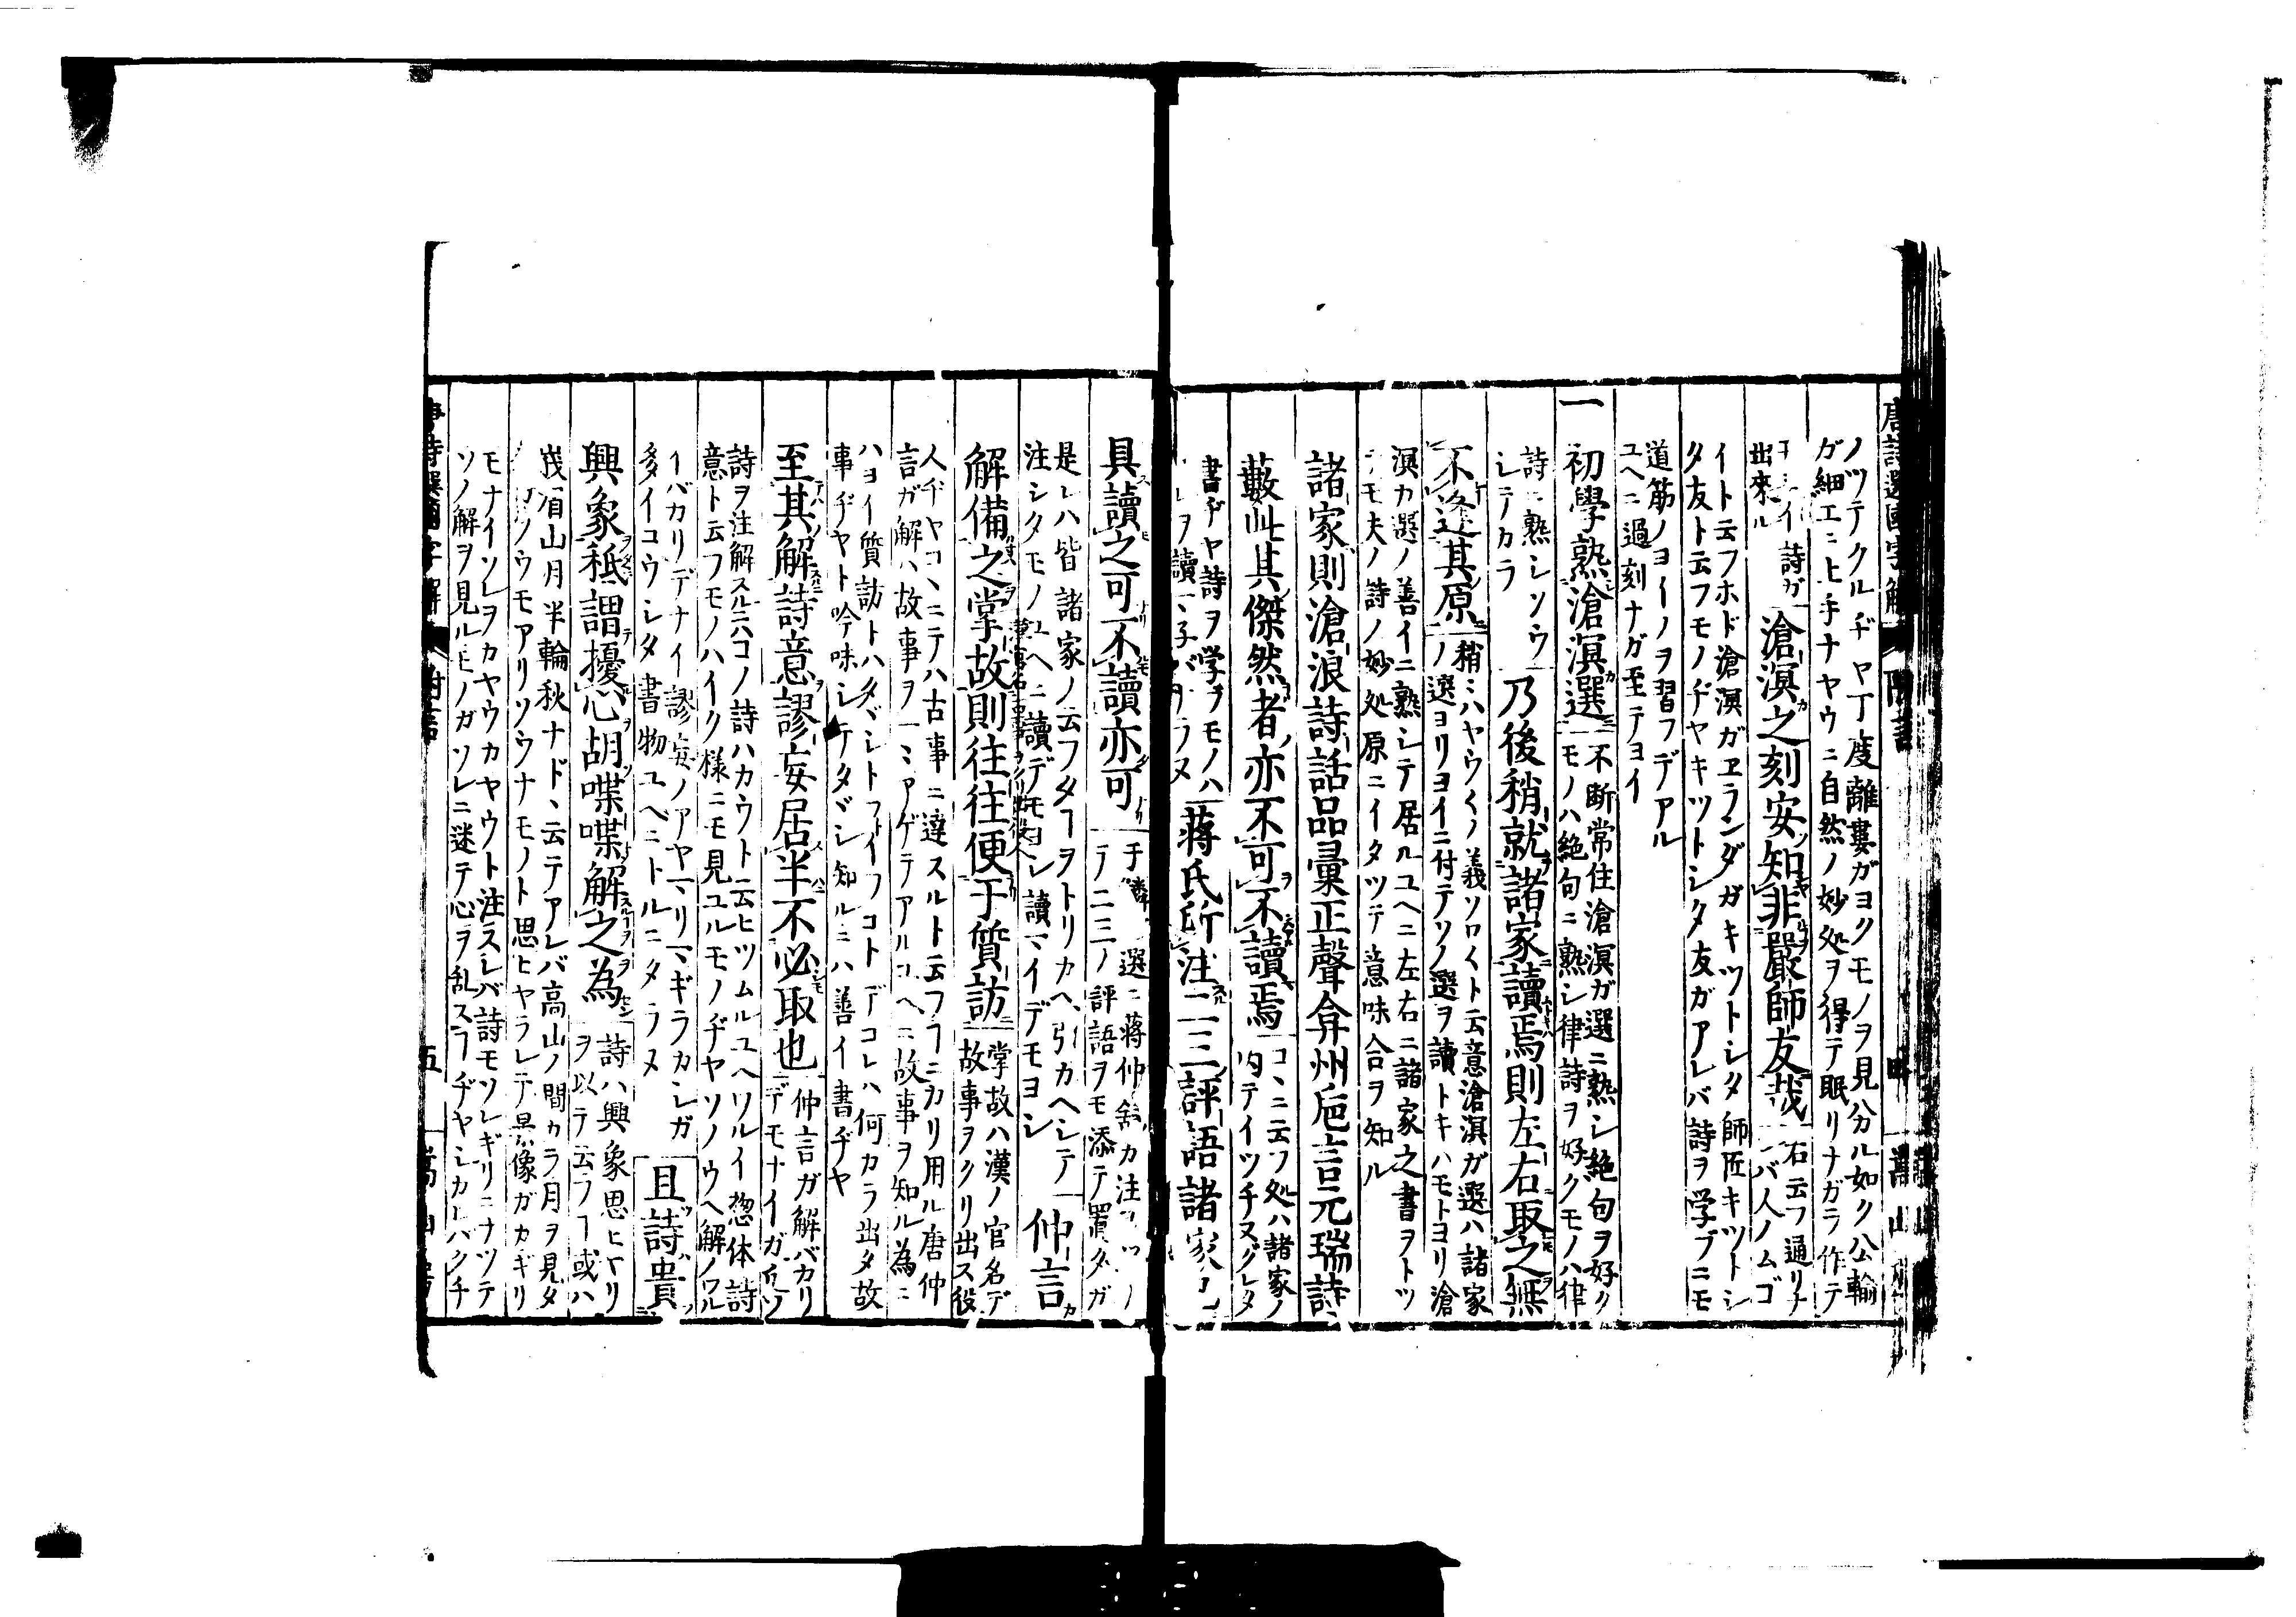 唐詩選國字解 附言
ノツテクルヂヤ丁度離婁ガヨクモノヲ見分ル如ク公輸
ガ細工ニ上手ナヤウニ自然ノ妙処ヲ得テ眠リナガラ作テ
イ詩ガ
出來ル
滄溟之刻安知非嚴師友哉
右云フ通リナ
バ人ノムゴ
イト云フホド滄溟ガヱランダガキツトシタ師匠キツトシ
タ友ト云フモノヂヤキツトシタ友ガアレバ詩ヲ学ブニモ
道筋ノヨイノヲ習フデアル
ユヘニ過刻ナガ至テヨイ
一初學熟滄溟選
不断常住滄溟ガ選ニ熟シ絶句ヲ好ク
モノハ絶句ニ熟シ律詩ヲ好クモノハ律
詩ニ熟シソウ
シテカラ
乃後稍就諸家讀焉則左右取之無
不逢其原
稍ミハヤウ〱ノ義ソロ〱ト云意滄溟ガ選ハ諸家
ノ選ヨリヨイニ付テソノ選ヲ讀トキハモトヨリ滄
溟カ選ノ善イニ熟シテ居ルユヘニ左右ニ諸家之書ヲトツ
テモ夫ノ詩ノ妙処原ニイタツテ意味合ヲ知ル
諸家則滄浪詩話品彙正聲弇州巵言元瑞詩
藪此其傑然者亦不可不讀焉
コヽニ云フ処ハ諸家ノ
内テイツチスグレタ
書ヂヤ詩ヲ学ヲモノハ
ヲ讀
蔣氏所注二三評語諸家
具讀之可不讀亦可
選ニ蒋仲舒カ注
テ二三ノ評語ヲモ添テ置タガ
是レハ皆諸家ノ云フタヿヲトリカヘ引カヘシテ
注シタモノユヘニ讀デモヨシ讀マイデモヨシ
仲言
解備之掌故則往往便于質訪
掌故ハ漢ノ官名デ
故事ヲクリ出ス役
人ヂヤコヽニテハ古事ニ達スルト云フヿニカリ用ル唐仲
言ガ解ハ故事ヲ一ミアゲテアルユヘニ故事ヲ知ル為ニ
ハヨイ質訪トハタヾシトフイフコトデコレハ何カラ出タ故
事ヂヤト吟味シテタヾシ知ルニハ善イ書ヂヤ
至其解詩意謬妄居半不必取也
仲言ガ解バカリ
デモナイガ
詩ヲ注解スル六コノ詩ハカウト云ヒツムルユヘワルイ惣体詩
意ト云フモノハイク様ニモ見ユルモノヂヤソノウヘ解ノワル
イバカリデナイ謬妄ノアヤマリマギラカシガ
多イコウシタ書物ユヘニトルニタラヌ
且詩貴
興象秪謂擾心胡喋喋解之為
詩ハ興象思ヒヤリ
ヲ以テ云フヿ或ハ
峩眉山月半輪秋ナドヽ云テアレバ高山ノ間カラ月ヲ見タ
ノウモアリソウナモノト思ヒヤラレテ景像ガカギリ
モナイソレヲカヤウカヤウト注スレバ詩モソレギリニナツテ
ソノ解ヲ見ルモノガソレニ迷テ心ヲ乱スヿヂヤシカ
唐詩選國字解 附言 五